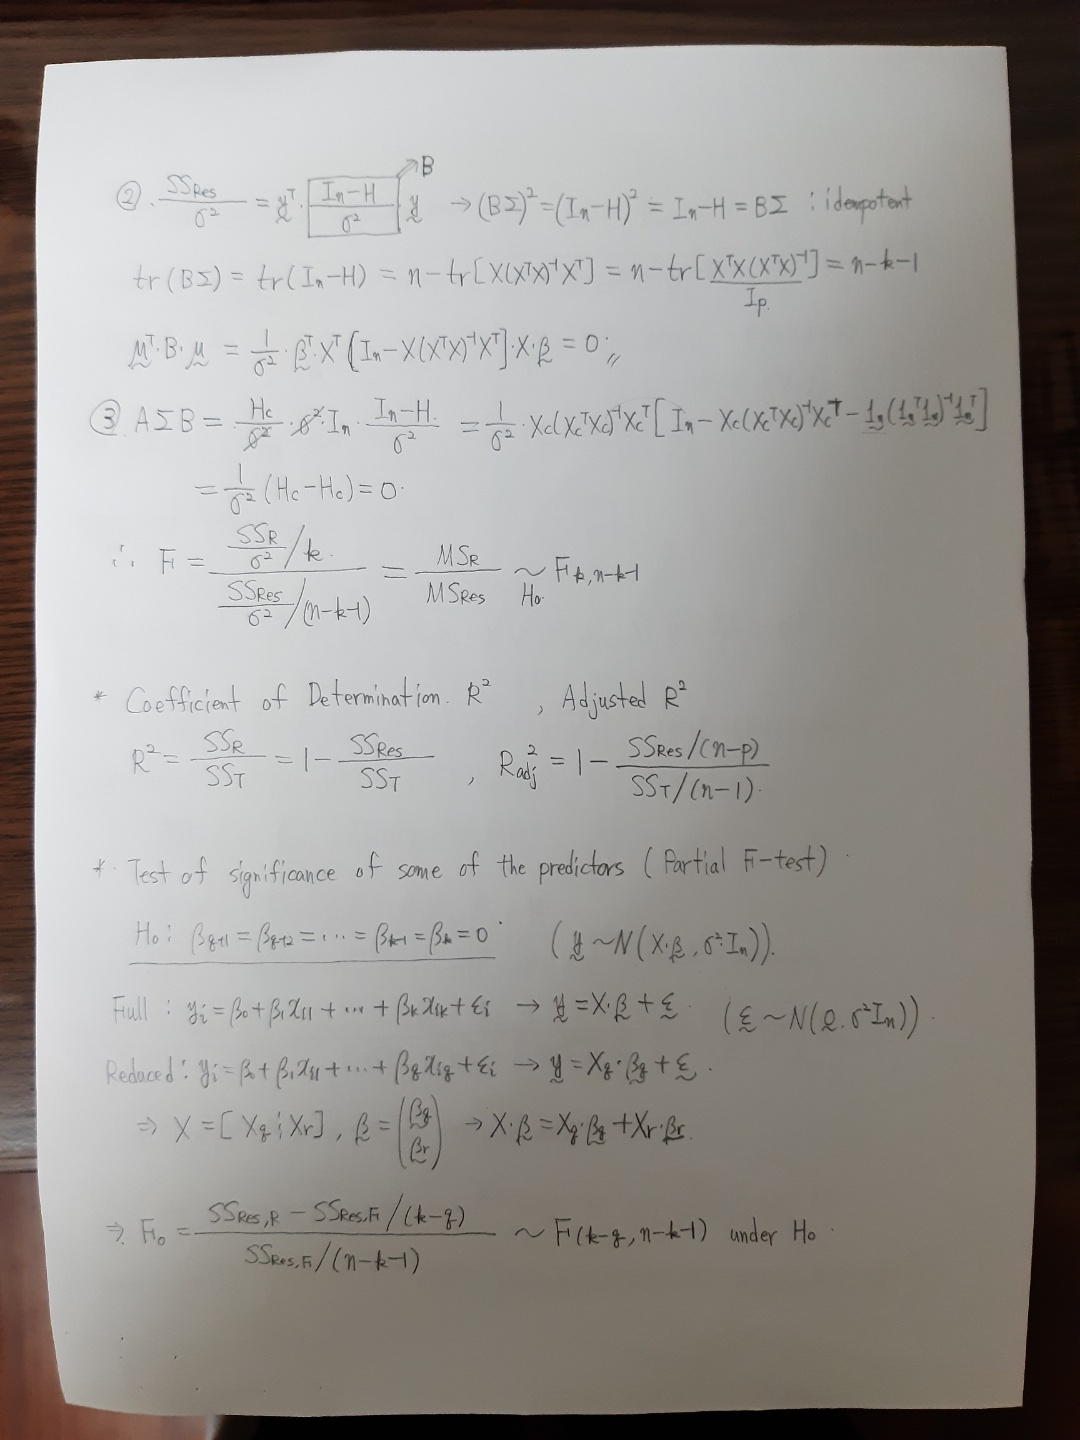 ②. SSRes/σ² = y^T · (In−H)/σ² y → B → (BΣ)² = (In−H)² = In−H = BΣ : idempotent
tr(BΣ) = tr(In−H) = n − tr[X(X^TX)^-1X^T] = n − tr[X^TX(X^TX)^-1] = n−k−1
Ip.
μ^T·B·μ = 1/σ² · β^T·X^T[In−X(X^TX)^-1X^T]·X·β = 0 〃
③ AΣB = Hc/σ² · σ²·In · (In−H)/σ² = 1/σ² · Xc(Xc^TXc)^-1Xc^T[In − Xc(Xc^TXc)^-1Xc^T − 1n(1n^T1n)^-1 1n^T]
= 1/σ² (Hc−Hc) = 0.
∴ F = (SSR/σ² / k) / (SSRes/σ² / (n−k−1)) = MSR/MSRes ~ H0 Fk,n−k−1
* Coefficient of Determination. R² , Adjusted R²
R² = SSR/SST = 1 − SSRes/SST , R²adj = 1 − (SSRes/(n−p)) / (SST/(n−1)).
* Test of significance of some of the predictors (Partial F-test)
H0 : βq+1 = βq+2 = ··· = βk−1 = βk = 0 (y ~ N(X·β, σ²·In)).
Full : yi = β0 + β1xi1 + ··· + βkxik + εi → y = X·β + ε. (ε ~ N(0, σ²In)).
Reduced : yi = β0 + β1xi1 + ··· + βqxiq + εi → y = Xq·βq + ε.
⇒ X = [Xq ¦ Xr], β = (βq βr) → X·β = Xq·βq + Xr·βr.
⇒ F0 = (SSRes,R − SSRes,F/(k−q)) / (SSRes,F/(n−k−1)) ~ F(k−q, n−k−1) under H0.